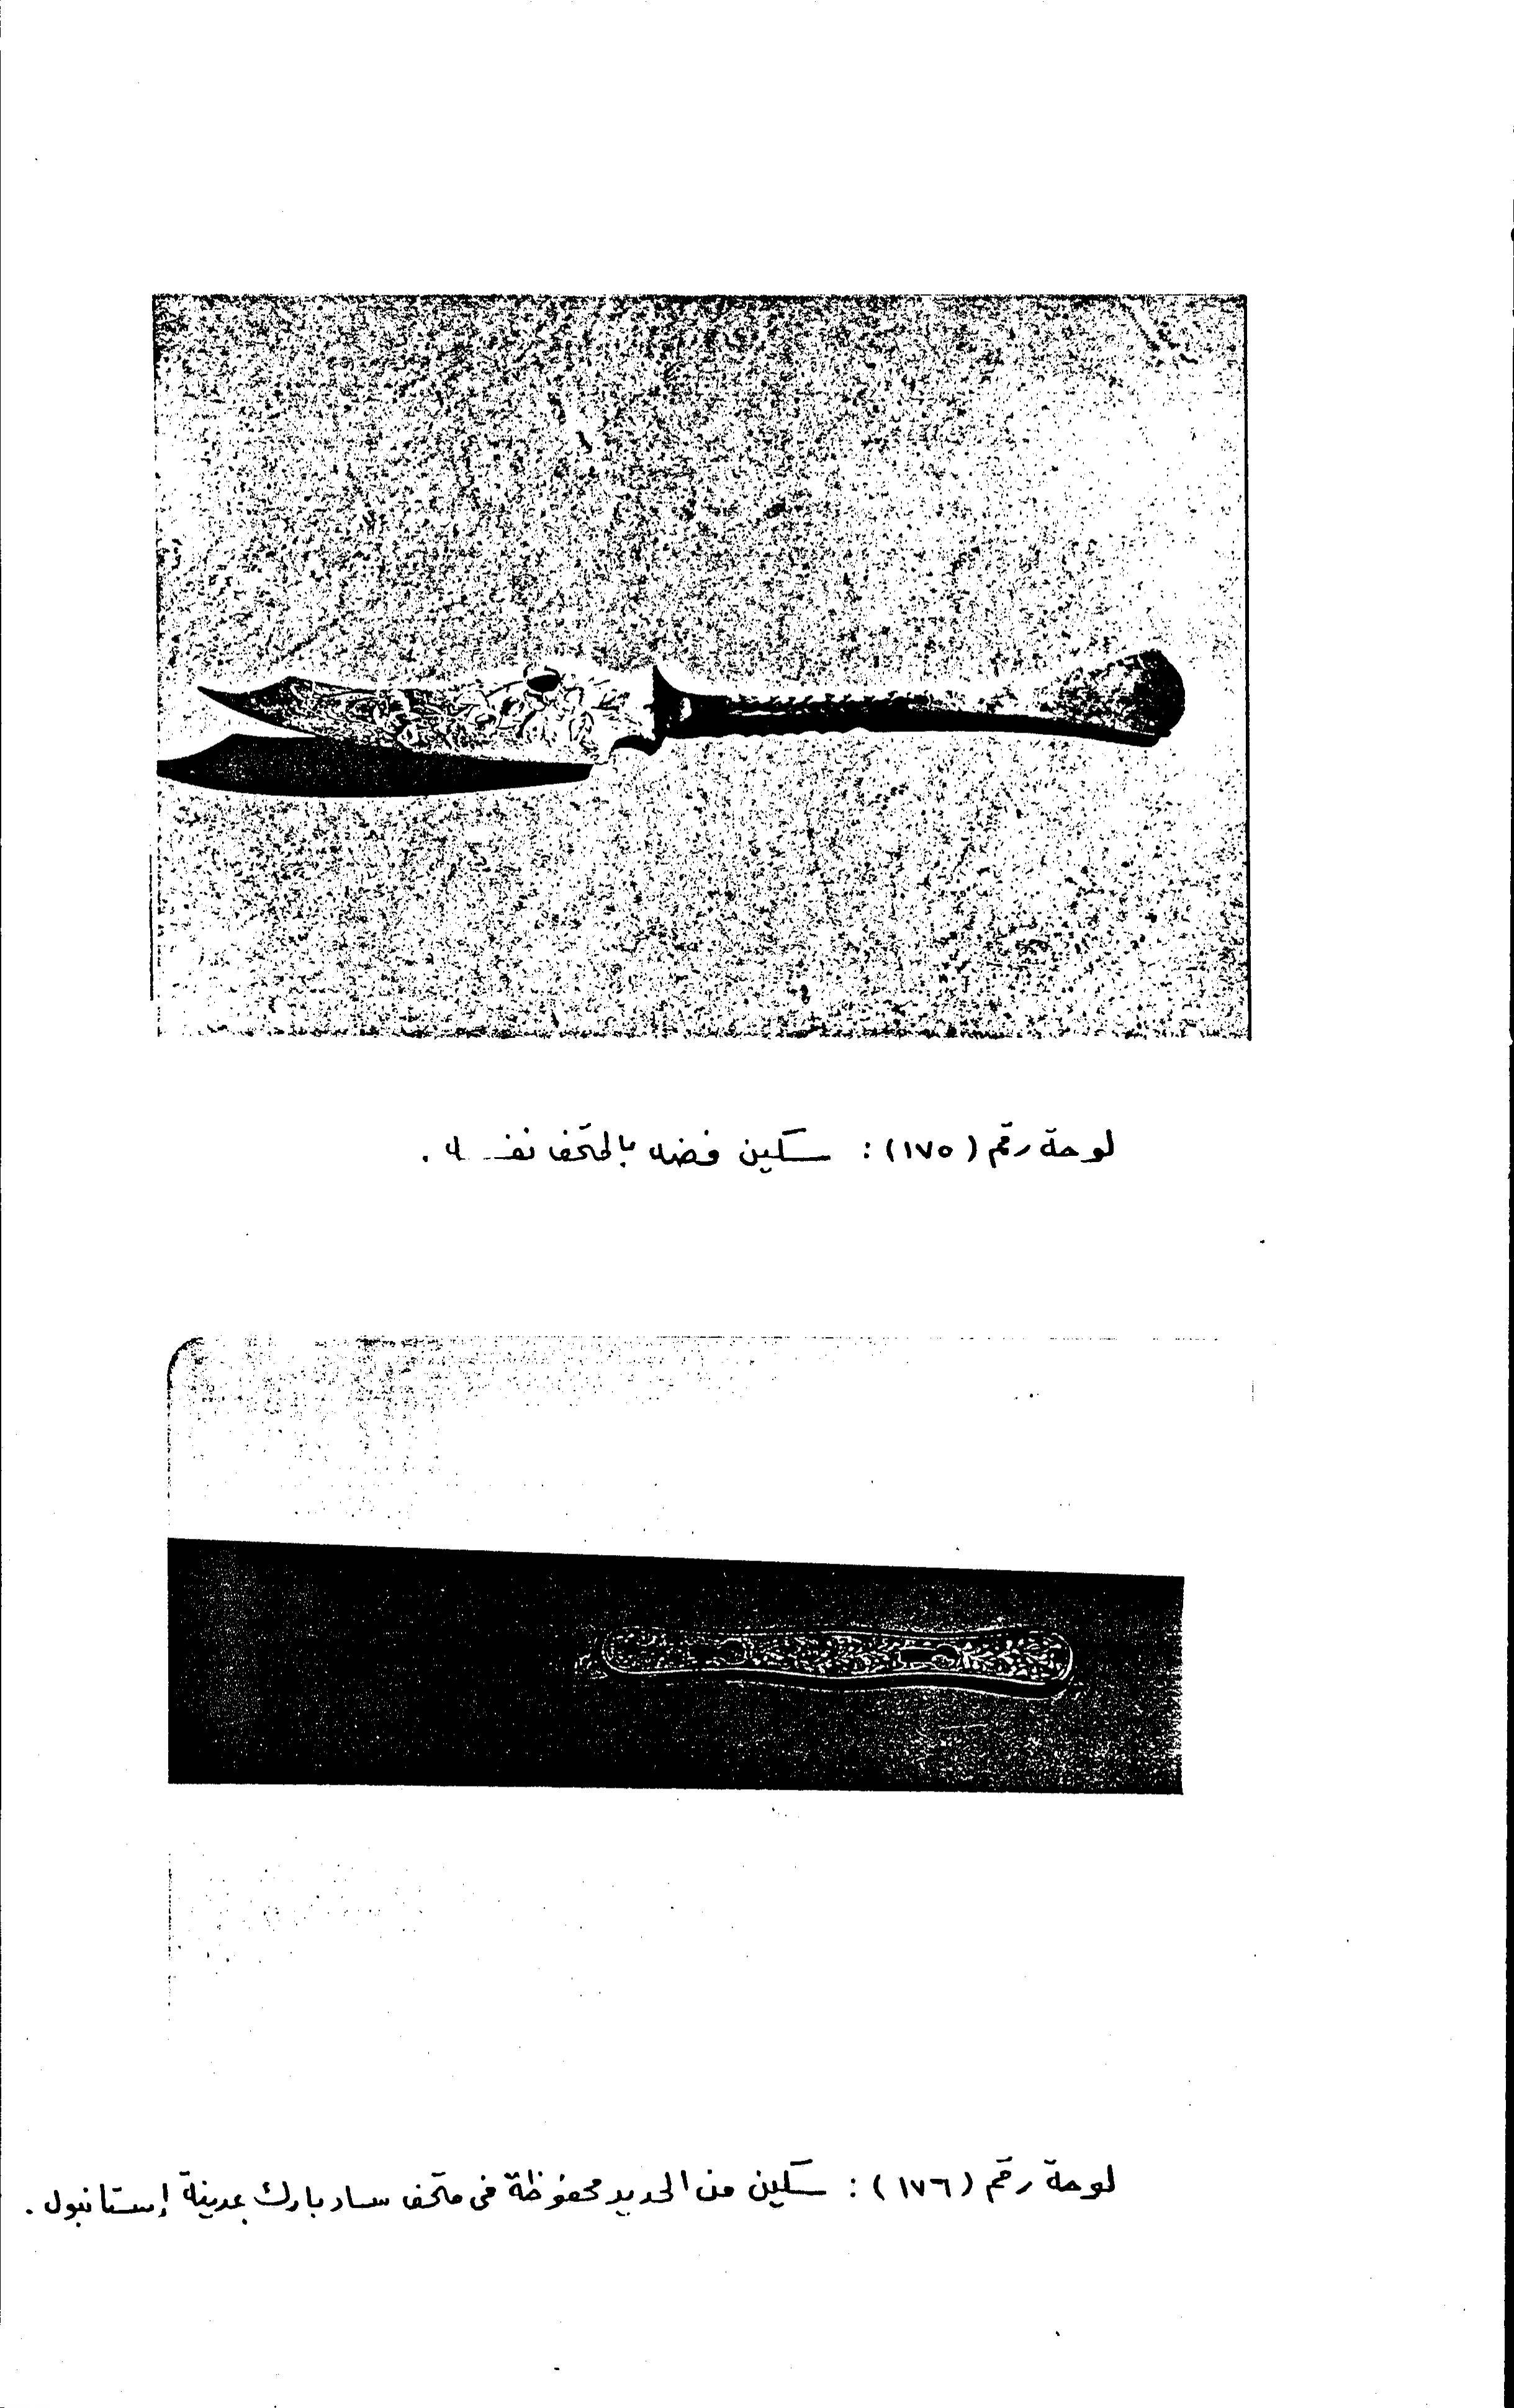 لوحة رقم (١٧٥) : سكين فضه بالمتحف نفسه .
لوحة رقم (١٧٦) : سكين من الحديد محفوظة فى متحف سادبارك بمدينة إستانبول .